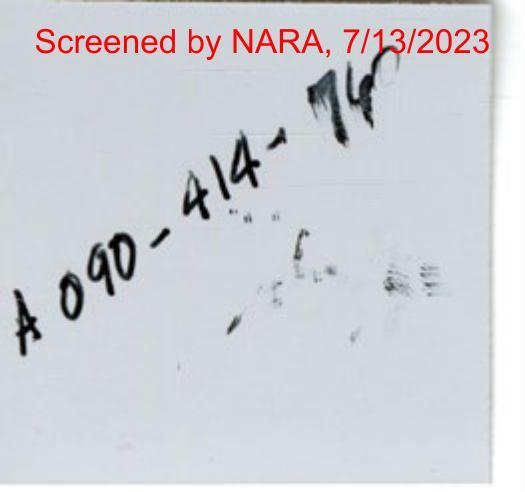 Screened by NARA, 7/13/2023
A 090-414-740